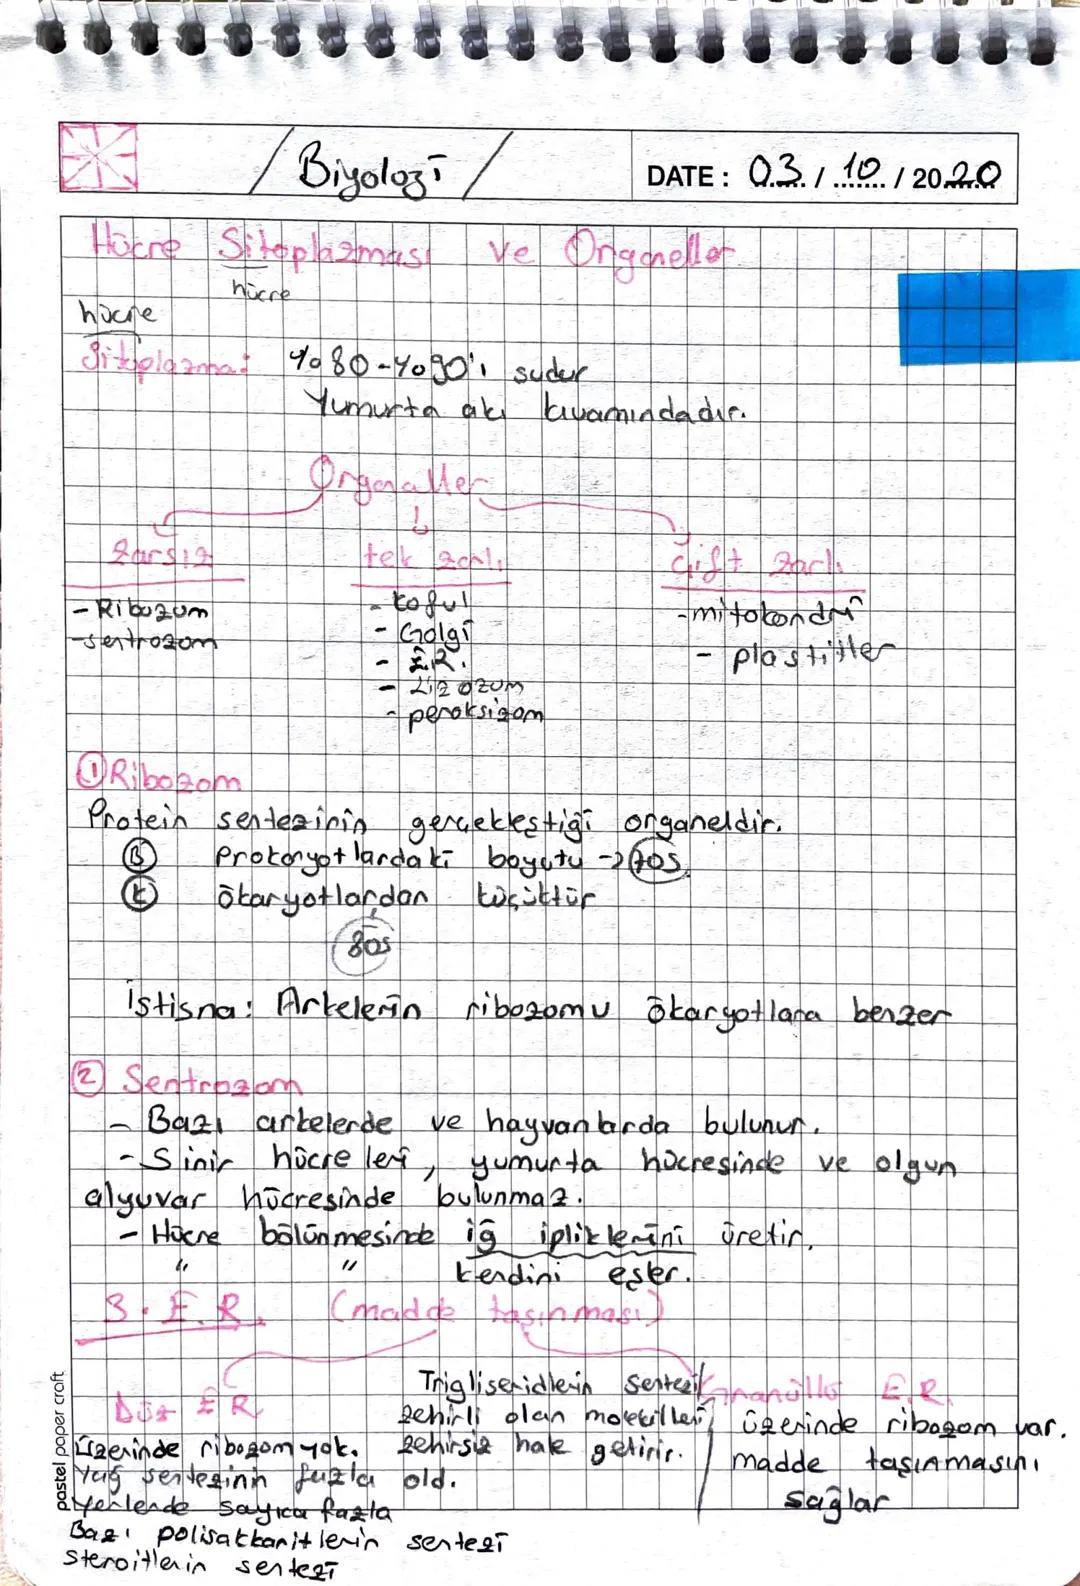 / Biyoloji /
DATE: 03 / 10 / 2020
Hücre Sitoplazması ve Organeller
hücre
hücre
Sitoplazma: %80-%90'ı sudur
Yumurta akı kıvamındadır.
Organeller
zarsız
tek zarlı
çift zarlı
- Ribozom
- sentrozom
- koful
- Golgi
- E.R.
- Lizozom
- peroksizom
- mitokondri
- plastitler
① Ribozom
Protein sentezinin gerçekleştiği organeldir.
B Prokaryotlardaki boyutu → 70S
K ökaryotlardan küçüktür
80S
istisna: Arkelerin ribozomu ökaryotlara benzer
② Sentrozom
- Bazı arkelerde ve hayvanlarda bulunur.
- Sinir hücreleri, yumurta hücresinde ve olgun
alyuvar hücresinde bulunmaz.
- Hücre bölünmesinde iğ ipliklerini üretir.
" " kendini eşler.
3. E.R. (madde taşınması)
Düz E.R.
üzerinde ribozom yok.
Yağ sentezinin fazla old.
yerlerde sayıca fazla
Bazı polisakkaritlerin sentezi
steroitlerin sentezi
Trigliseridlerin sentezi
zehirli olan molekülleri
zehirsiz hale getirir.
Granüllü E.R.
üzerinde ribozom var.
madde taşınmasını
sağlar
pastel paper craft